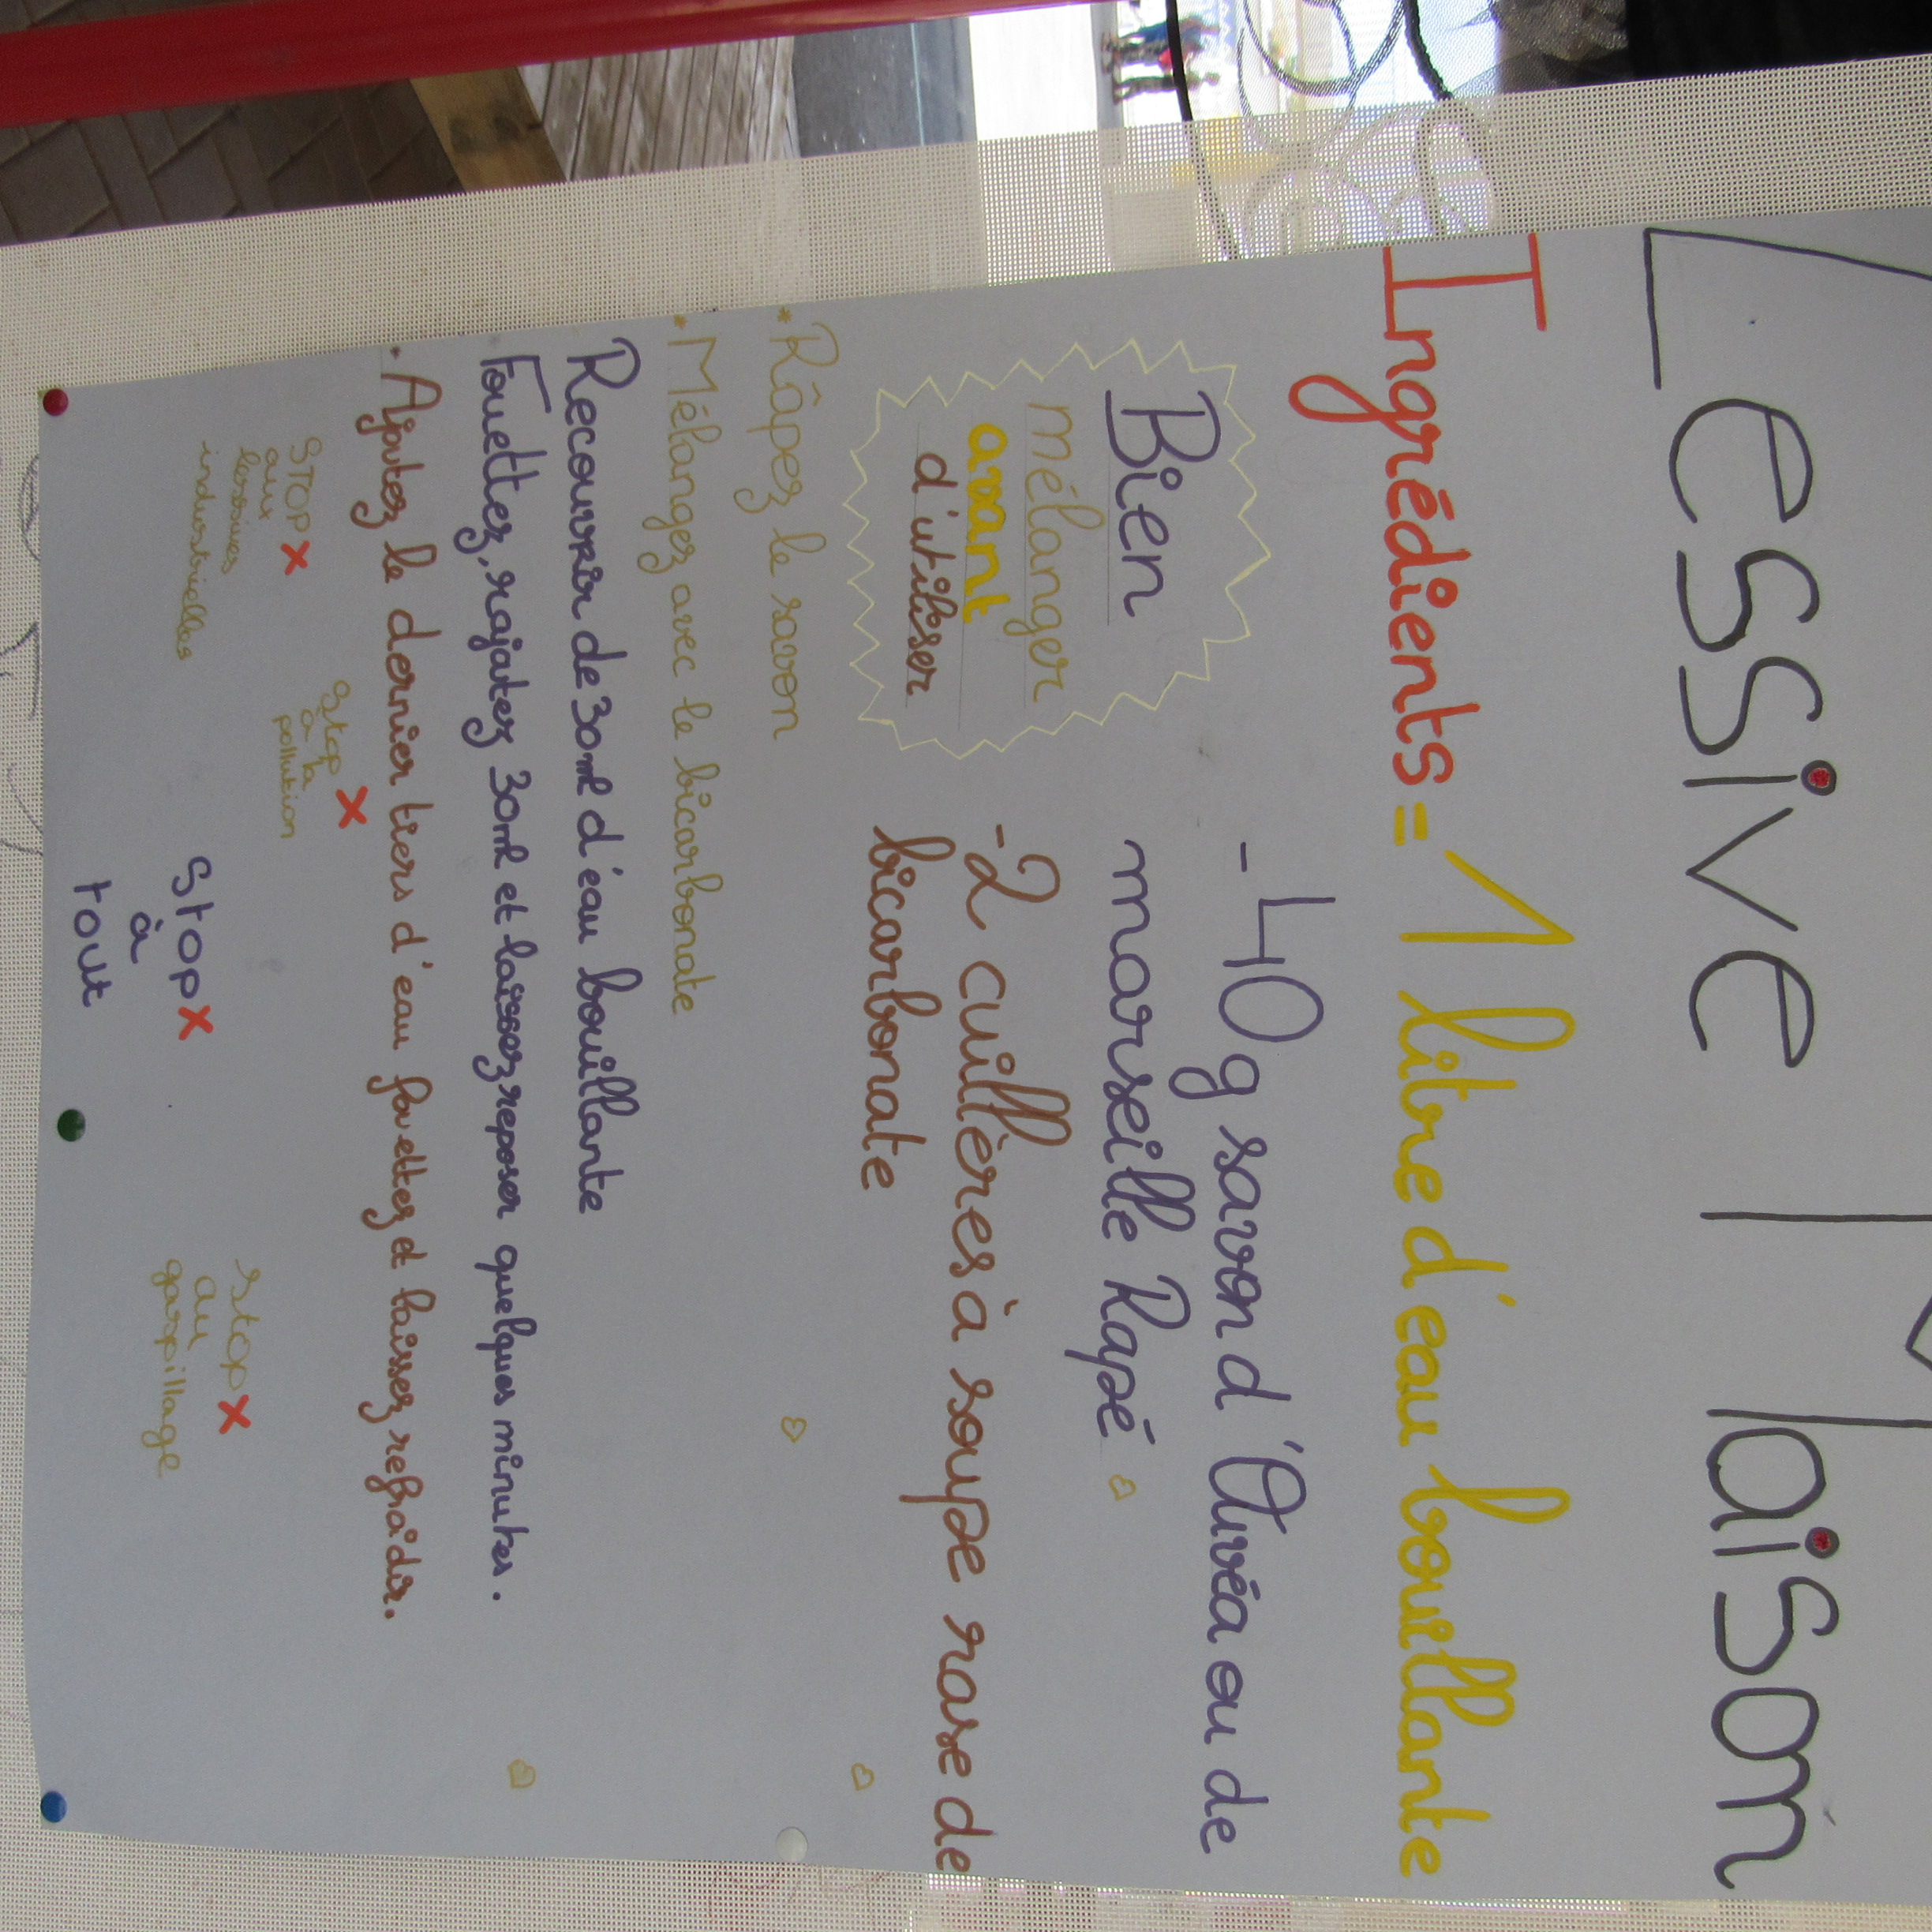 Lessive Maison
Ingrédients = 1 litre d'eau bouillante
- 40g savon d'Ouvéa ou de
marseille Rapé
- 2 cuillères à soupe rase de
bicarbonate
Bien
mélanger
avant
d'utiliser
* Râpez le savon
* Mélangez avec le bicarbonate
Recouvrir de 30ml d'eau bouillante
Fouettez, rajoutez 30ml et laissez reposer quelques minutes.
. Ajoutez le dernier tiers d'eau fouettez et laissez refraîdir.
STOP X
aux
lessives
industrielles
Stop X
à la
pollution
Stop X
à
tout
Stop X
au
gaspillage